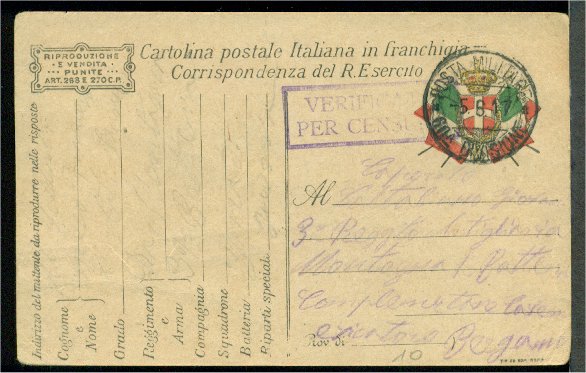 RIPRODUZIONE
E VENDITA
PUNITE
ART. 268 E 270 C.P.
Cartolina postale Italiana in franchigia
Corrispondenza del R. Esercito
POSTA MILITARE
5.8.17
DIVISIONE
VERIFICA
PER CENSU
Indirizzo del mittente da riprodurre nelle risposte
Cognome
e
Nome
Grado
Reggimento
e
Arma
Compagnia
Squadrone
Batteria
Riparti speciali
Caporale
Al
3° Artiglieria
Montagna
Complementare
Prov. di Bergamo
10